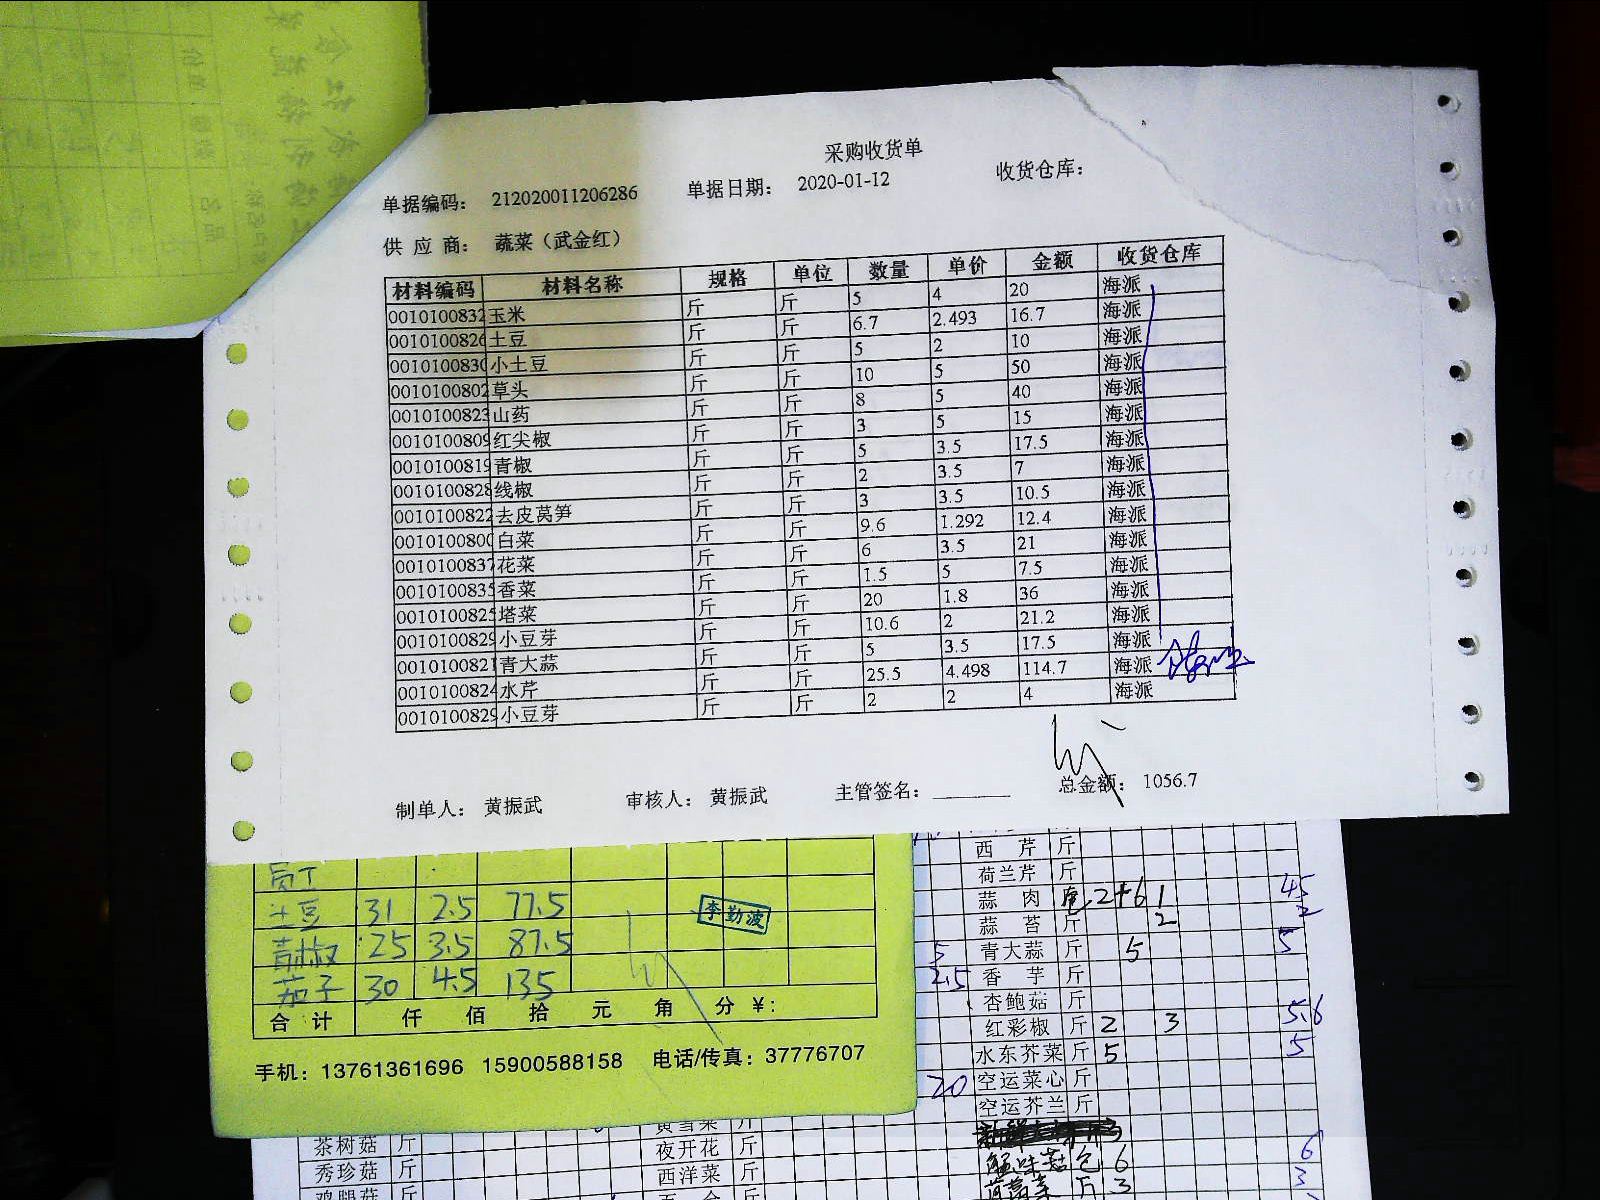 采购收货单
单据编码： 212020011206286 单据日期： 2020-01-12 收货仓库：
供 应 商： 蔬菜（武金红）
材料编码 材料名称 规格 单位 数量 单价 金额 收货仓库
0010100832 玉米 斤 斤 5 4 20 海派
0010100826 土豆 斤 斤 6.7 2.493 16.7 海派
0010100830 小土豆 斤 斤 5 2 10 海派
0010100802 草头 斤 斤 10 5 50 海派
0010100823 山药 斤 斤 8 5 40 海派
0010100809 红尖椒 斤 斤 3 5 15 海派
0010100819 青椒 斤 斤 5 3.5 17.5 海派
0010100828 线椒 斤 斤 2 3.5 7 海派
0010100822 去皮莴笋 斤 斤 3 3.5 10.5 海派
0010100800 白菜 斤 斤 9.6 1.292 12.4 海派
0010100837 花菜 斤 斤 6 3.5 21 海派
0010100835 香菜 斤 斤 1.5 5 7.5 海派
0010100825 塔菜 斤 斤 20 1.8 36 海派
0010100829 小豆芽 斤 斤 10.6 2 21.2 海派
0010100821 青大蒜 斤 斤 5 3.5 17.5 海派
0010100824 水芹 斤 斤 25.5 4.498 114.7 海派
0010100829 小豆芽 斤 斤 2 2 4 海派
制单人： 黄振武 审核人： 黄振武 主管签名： 总金额： 1056.7
土豆 31 2.5 77.5
李勤波
青椒 25 3.5 87.5
茄子 30 4.5 135
合 计 仟 佰 拾 元 角 分 ¥：
手机：13761361696 15900588158 电话/传真：37776707
西 芹 斤
荷兰芹 斤
蒜 肉 2+6 1 45
蒜 苔 斤 2 2
5 青大蒜 斤 5 5
2.5 香 芋 斤
杏鲍菇 斤
红彩椒 斤 2 3 5.6
水东芥菜 斤 5 5
20 空运菜心 斤
空运芥兰 斤
蟹味菇 包 6 6
斤 3 3
茶树菇 斤
秀珍菇 斤
鸡腿菇 斤
黄雪菜 斤
夜开花 斤
西洋菜 斤